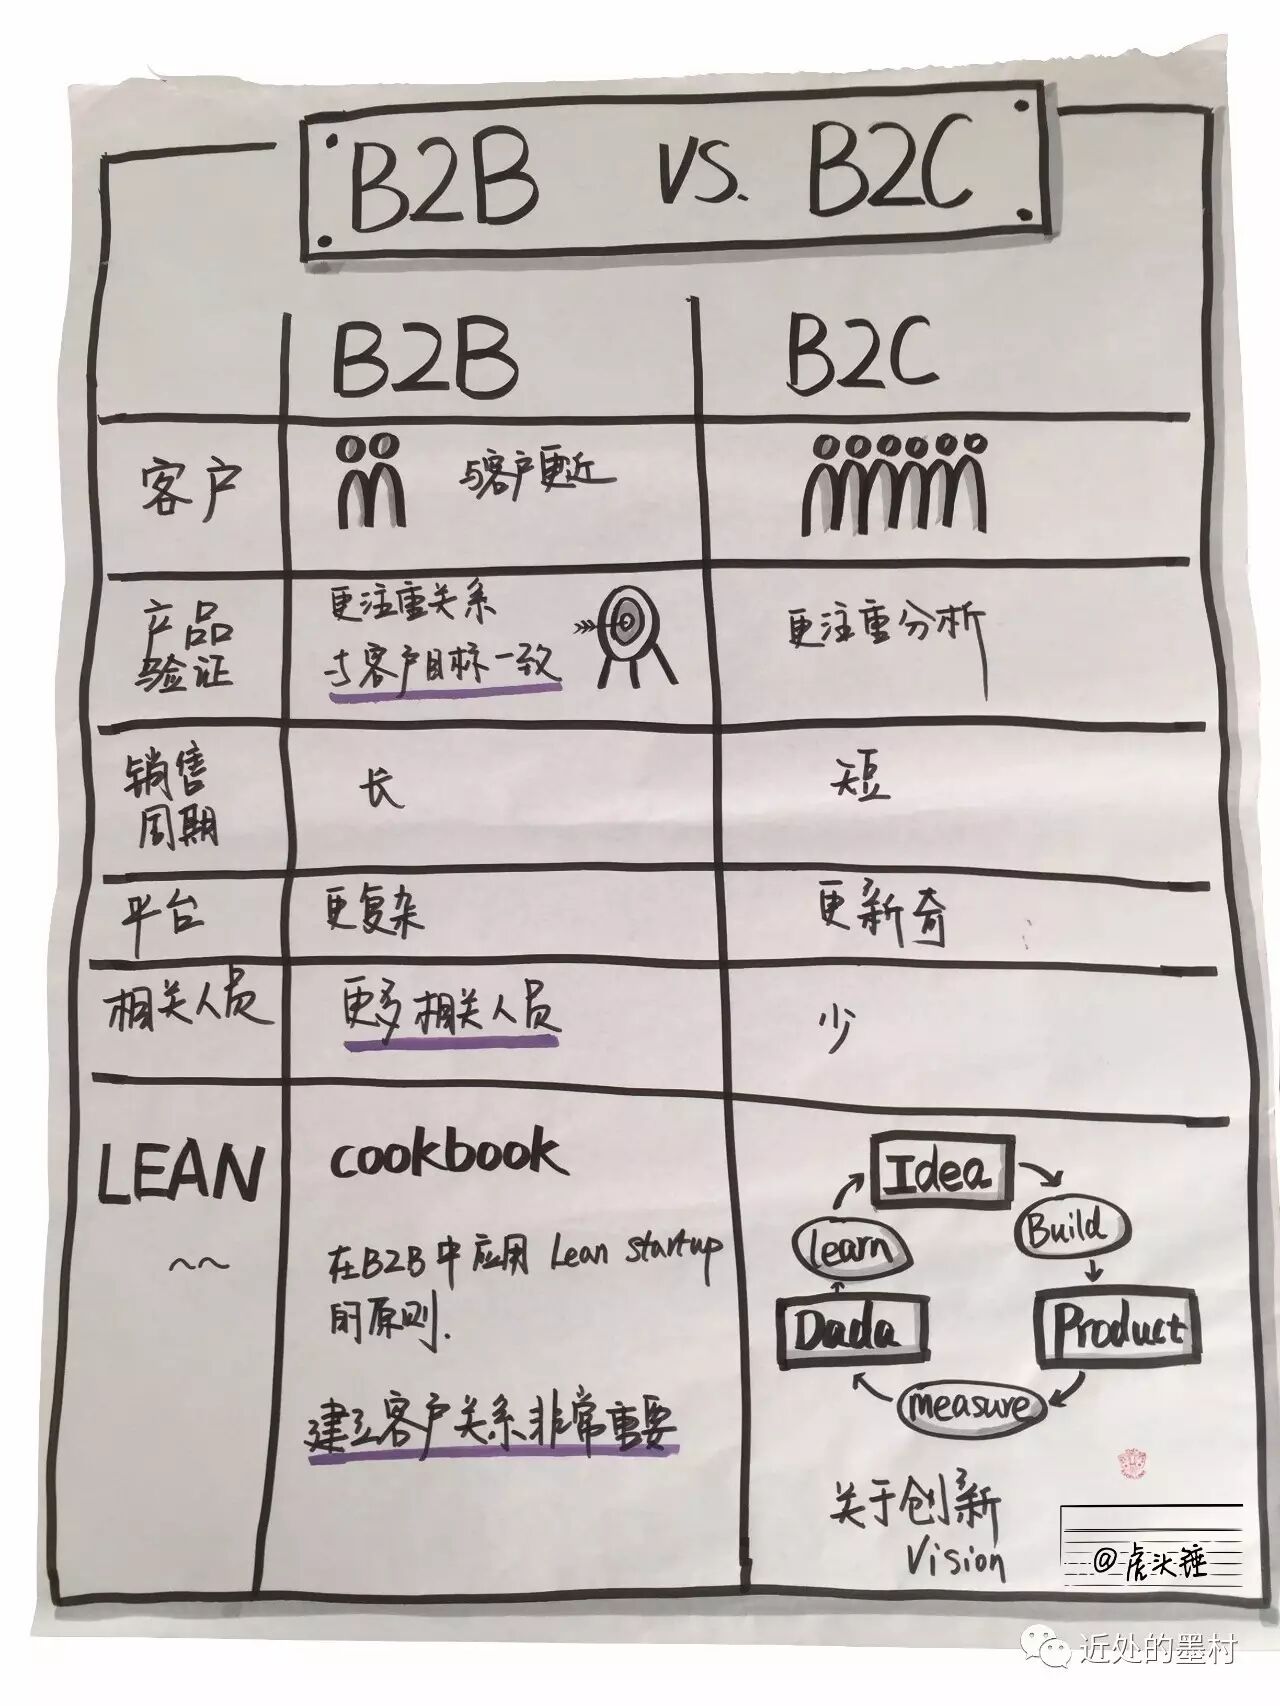 B2B vs. B2C
B2B
B2C
客户
与客户更近
产品
验证
更注重关系
与客户目标一致
更注重分析
销售
周期
长
短
平台
更复杂
更新奇
相关人员
更多相关人员
少
LEAN
~~
cookbook
在B2B中应用 Lean startup
的原则.
建立客户关系非常重要
Idea
Build
Product
measure
Dada
learn
关于创新
Vision
@虎头锤
近处的墨村